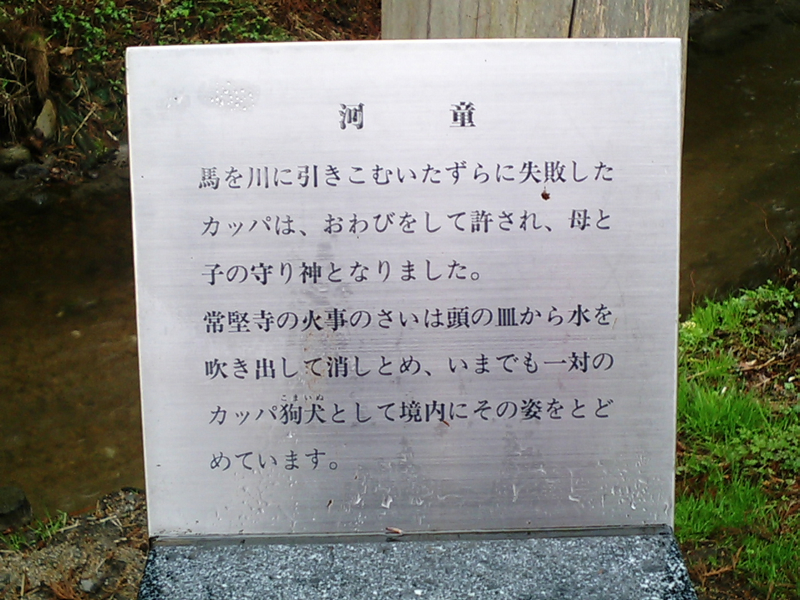 河童
馬を川に引きこむいたずらに失敗した
カッパは、おわびをして許され、母と
子の守り神となりました。
常堅寺の火事のさいは頭の皿から水を
吹き出して消しとめ、いまでも一対の
こまいぬ
カッパ狗犬として境内にその姿をとど
めています。